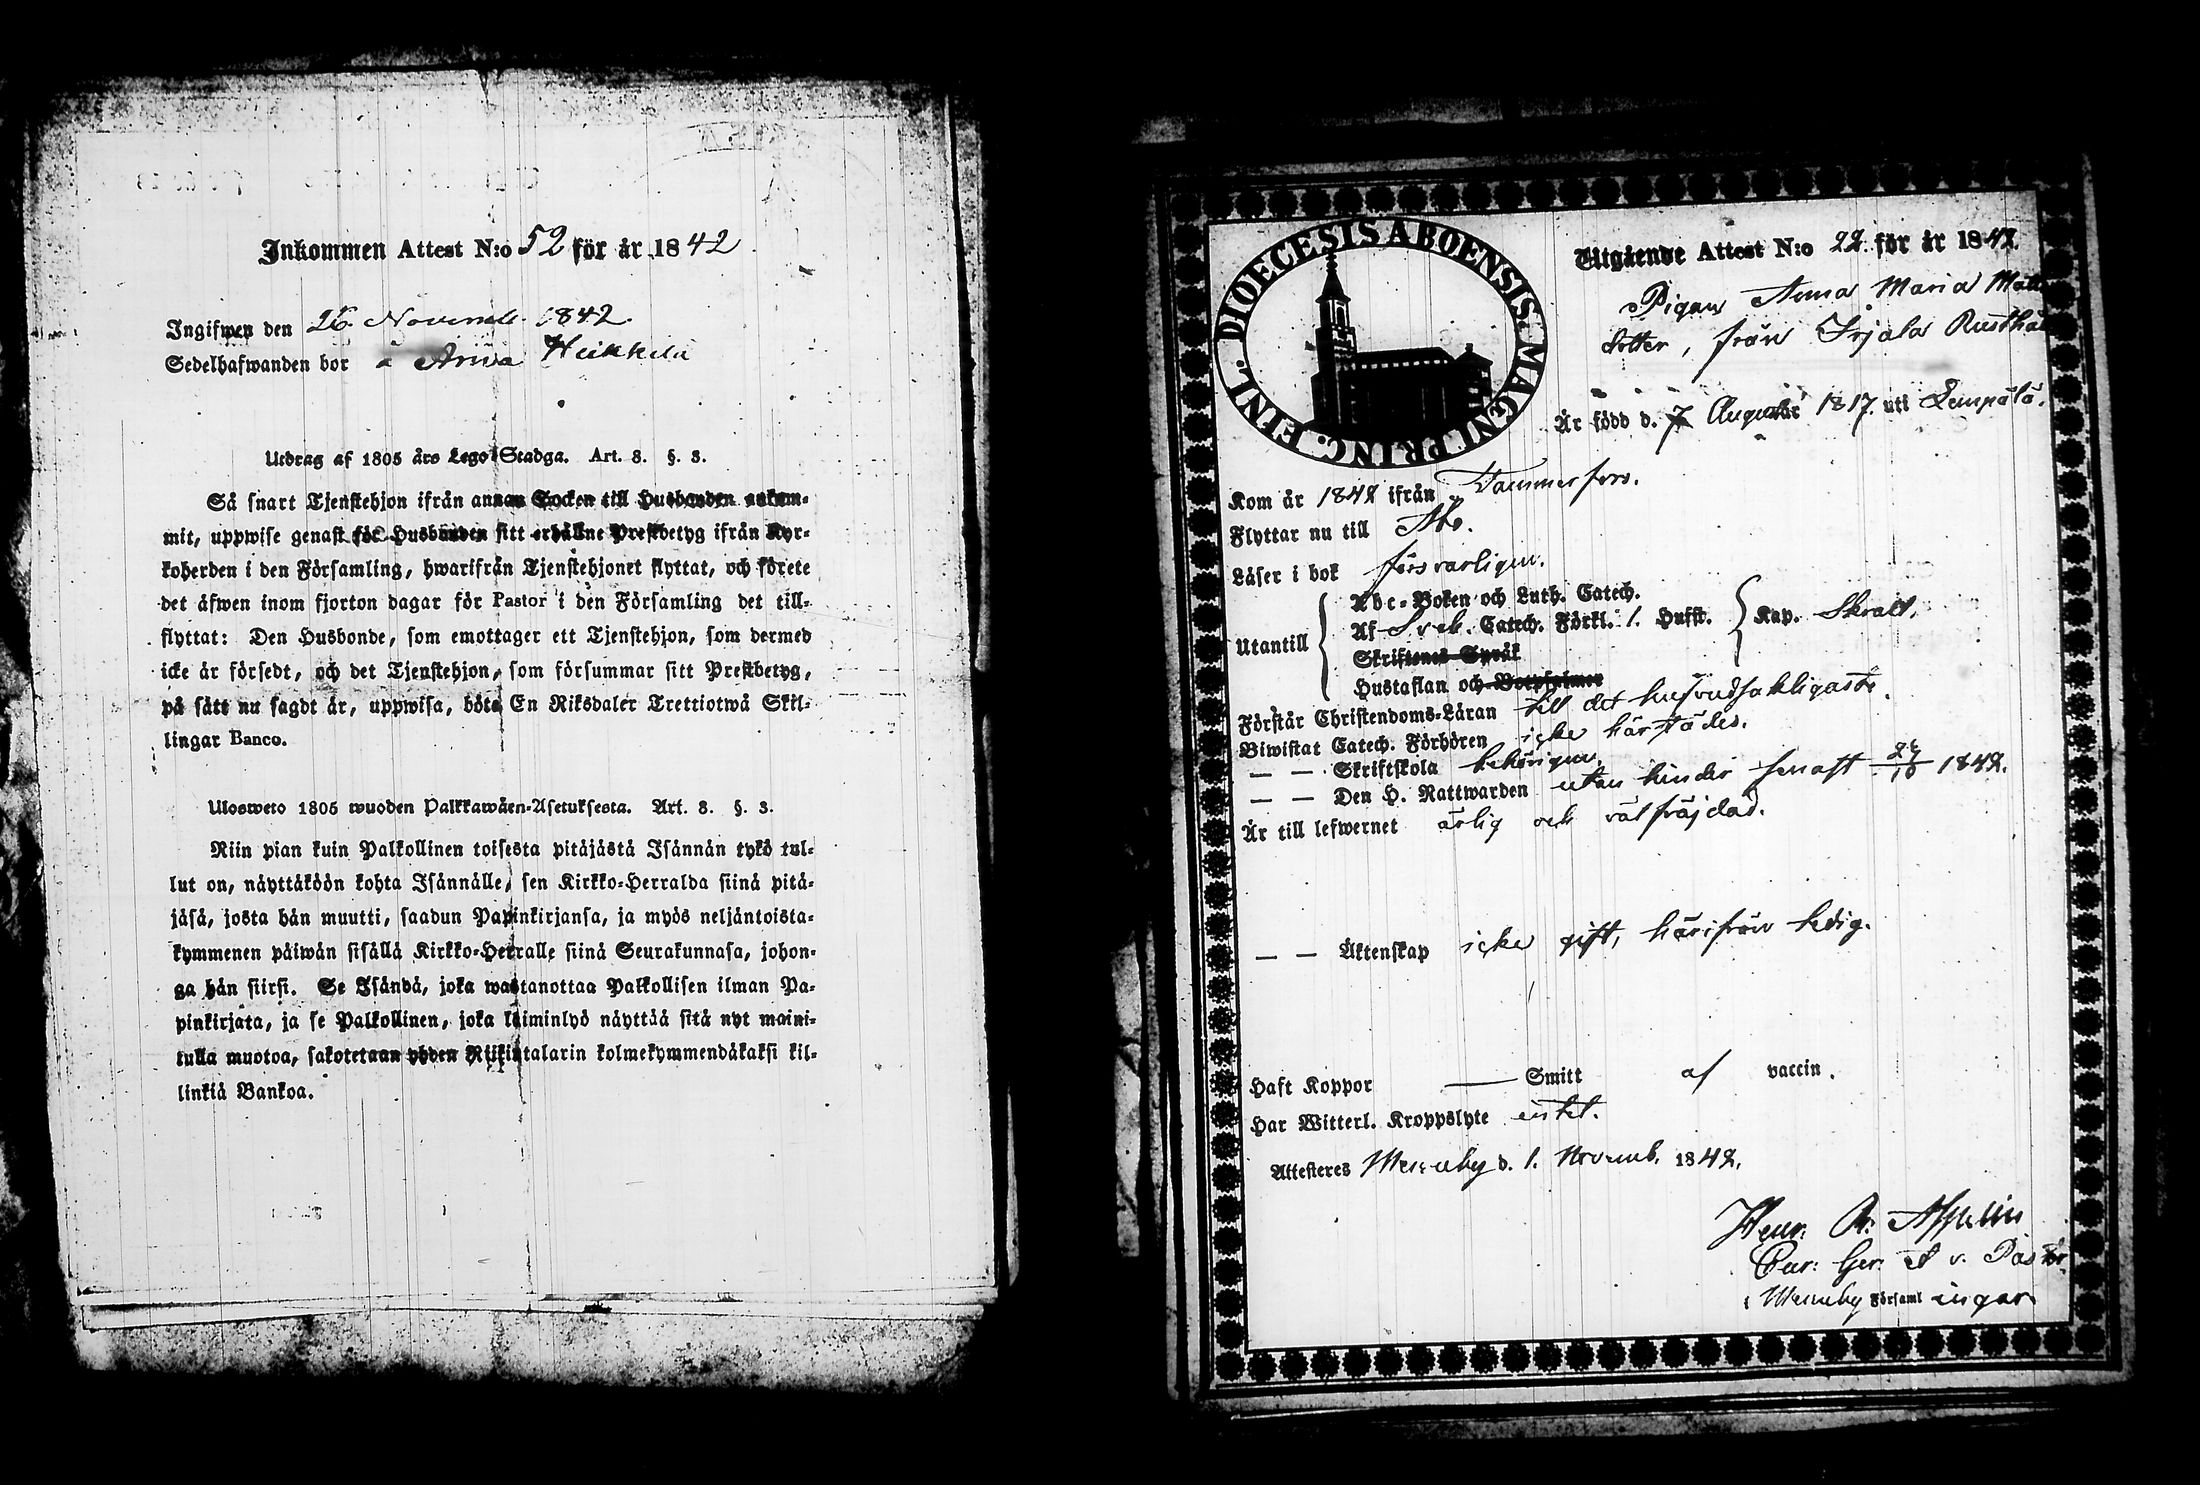 Inkommen Attest N:o 52 för år 1842
Ingifwen den 26 Novemb. 1842.
Sedelhafwanden bor å Arwa Heikkilä
Utdrag af 1805 års Lego-Stadga. Art. 8. §. 3.
Så snart Tjenstehjon ifrån annan Socken till Husbonden ankom-
mit, uppwise genast för Husbonden sitt erhållne Prestbetyg ifrån Kyr-
koherden i den Församling, hwarifrån Tjenstehjonet flyttat, och förete
det äfwen inom fjorton dagar för Pastor i den Församling det till-
flyttat: Den Husbonde, som emottager ett Tjenstehjon, som dermed
icke är försedt, och det Tjenstehjon, som försummar sitt Prestbetyg,
på sätt nu sagdt är, uppwisa, böte En Riksdaler Trettiotwå Skil-
lingar Banco.
Ulosweto 1805 wuoden Palkkawäen-Asetuksesta. Art. 8. §. 3.
Niin pian kuin Palkollinen toisesta pitäjästä Isännän tykö tul-
lut on, näyttäköön kohta Isännälle, sen Kirkko-Herralda siinä pitä-
jäsä, josta hän muutti, saadun Papinkirjansa, ja myös neljäntoista-
kymmenen päiwän sisällä Kirkko-Herralle siinä Seurakunnasa, johon-
ga hän siirsi. Se Isändä, joka wastanottaa Palkollisen ilman Pa-
pinkirjata, ja se Palkollinen, joka laiminlyö näyttää sitä nyt maini-
tulla muotoa, sakotetaan yhden Riikintalarin kolmekymmendäkaksi kil-
linkiä Bankoa.
DIOECESIS ABOENSIS. MAGNI PRINC. FINL.
Utgående Attest N:o 22 för år 1842.
Pigan Anna Maria Matts
dotter, från Irjala Rusthåll
Är född d. 7 Augusti 1817. uti Lempälä.
Kom år 1842 ifrån Tammerfors.
Flyttar nu till Åbo.
Läser i bok försvarligen.
Utantill Abc-Boken och Luth. Catech.
Af Sveb. Catech. Förkl. 1. Hufst. Kap. Skralt.
Skriftenes Språk
Hustaflan och Botpsalmer
Förstår Christendoms-Läran till det hufvudsakligaste.
Biwistat Catech. Förhören icke härstädes.
— — Skriftskola behörigen.
— — Den H. Nattwarden utan hinder senast 23/10 1842.
Är till lefwernet ärlig och välfräjdad.
— — Äktenskap icke gift, härifrån ledig.
Haft Koppor — Smitt af vaccin.
Har Witterl. Kroppslyte intet.
Attesteres Messuby d. 1. Novemb. 1842.
Henr. R. Appelin
Cur: Ger. A v. Pastor
i Messuby Församlingar